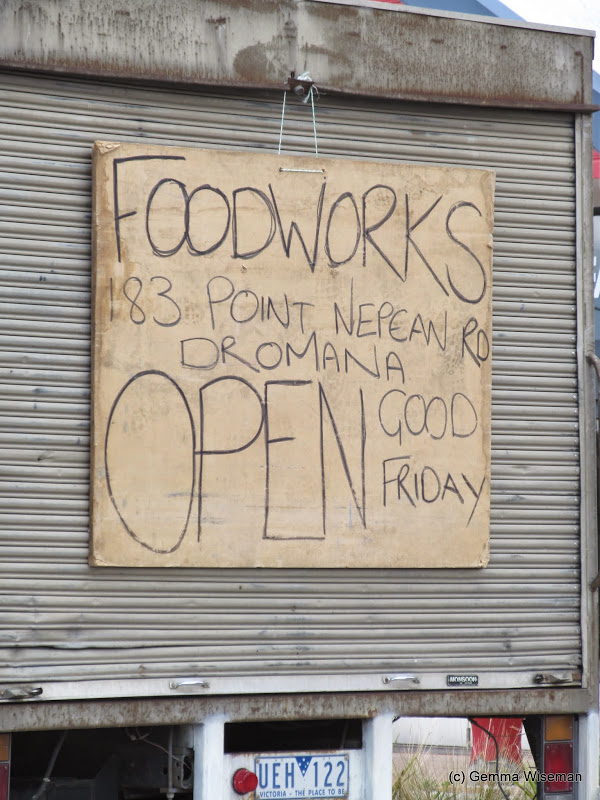 FOODWORKS
183 POINT NEPEAN RD
DROMANA
OPEN GOOD
FRIDAY
MONSOON
UEH 122
VICTORIA - THE PLACE TO BE
(c) Gemma Wiseman